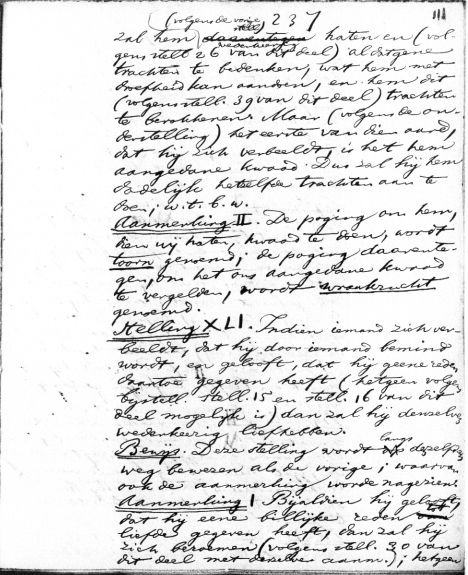 (volgens de vorige 237 111
stell)
zal hem daarentegen haten en (vol-
wederkeerig
gens stell 26 van dit deel) al datgene
trachten te bedenken, wat hem met
droefheid kan aandoen, en hem dit
(volgens stell. 39 van dit deel) trachten
te berokkenen. Maar (volgens de on-
derstelling) het eerste van die aard,
dat hij zich verbeeldt, is het hem
aangedane kwaad. Dus zal hij hem
dadelijk hetzelfde trachten aan te
doen; w.t.b.w.
Aanmerking II. De poging om hem,
dien wij haten, kwaad te doen, wordt
toorn genoemd; de poging daarente-
gen, om het ons aangedane kwaad
te vergelden, wordt wraakzucht
genoemd.
Stelling XLI. Indien iemand zich ver-
beeldt, dat hij door iemand bemind
wordt, en gelooft, dat hij geene reden
daartoe gegeven heeft (hetgeen volgens
bijstell. stell. 15 en stell. 16 van dit
deel mogelijk is) dan zal hij denzelven
wederkeerig liefhebben.
Bewijs. Deze stelling wordt langs dezelfden
weg bewezen als de vorige; waarvan
ook de aanmerking worde nagezien.
Aanmerking I Bijaldien hij gelooft,
dat hij eene billijke reden tot
liefde gegeven heeft, dan zal hij
zich beroemen (volgens stell. 30 van
dit deel met dezelver aanm.); hetgeen